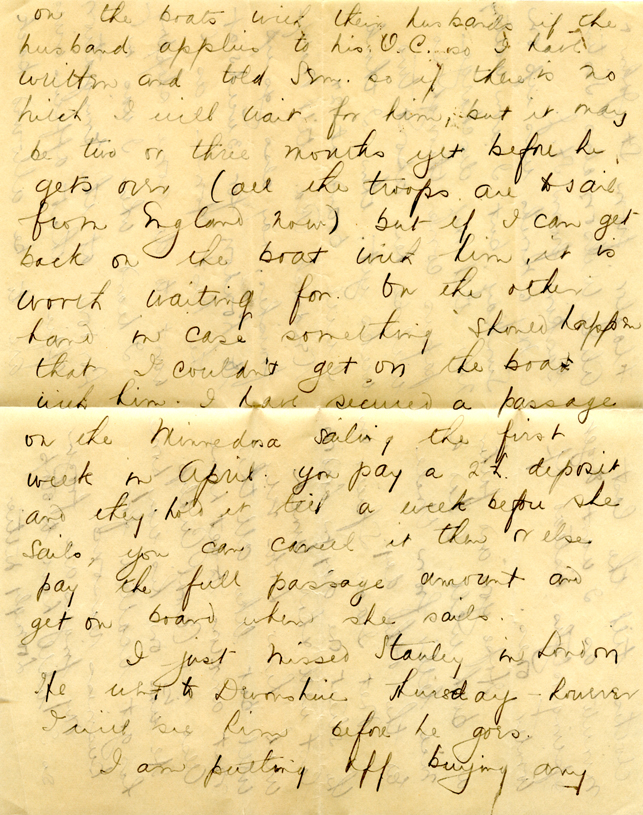 on the boats with their husbands if the
husband applies to his O.C. so I have
written and told Sym. so if there is no
hitch I will wait for him, but it may
be two or three months yet before he
gets over (all the troops are to sail
from England now) but if I can get
back on the boat with him, it is
worth waiting for. On the other
hand in case something should happen
that I couldn't get on the boat
with him. I have secured a passage
on the Minnedosa sailing the first
week in April. you pay a 2£ deposit
and they hold it till a week before she
sails, you can cancel it then or else
pay the full passage amount and
get on board when she sails.
I just missed Stanley in London
He went to Devonshire Thursday - however
I will see him before he goes.
I am putting off buying any